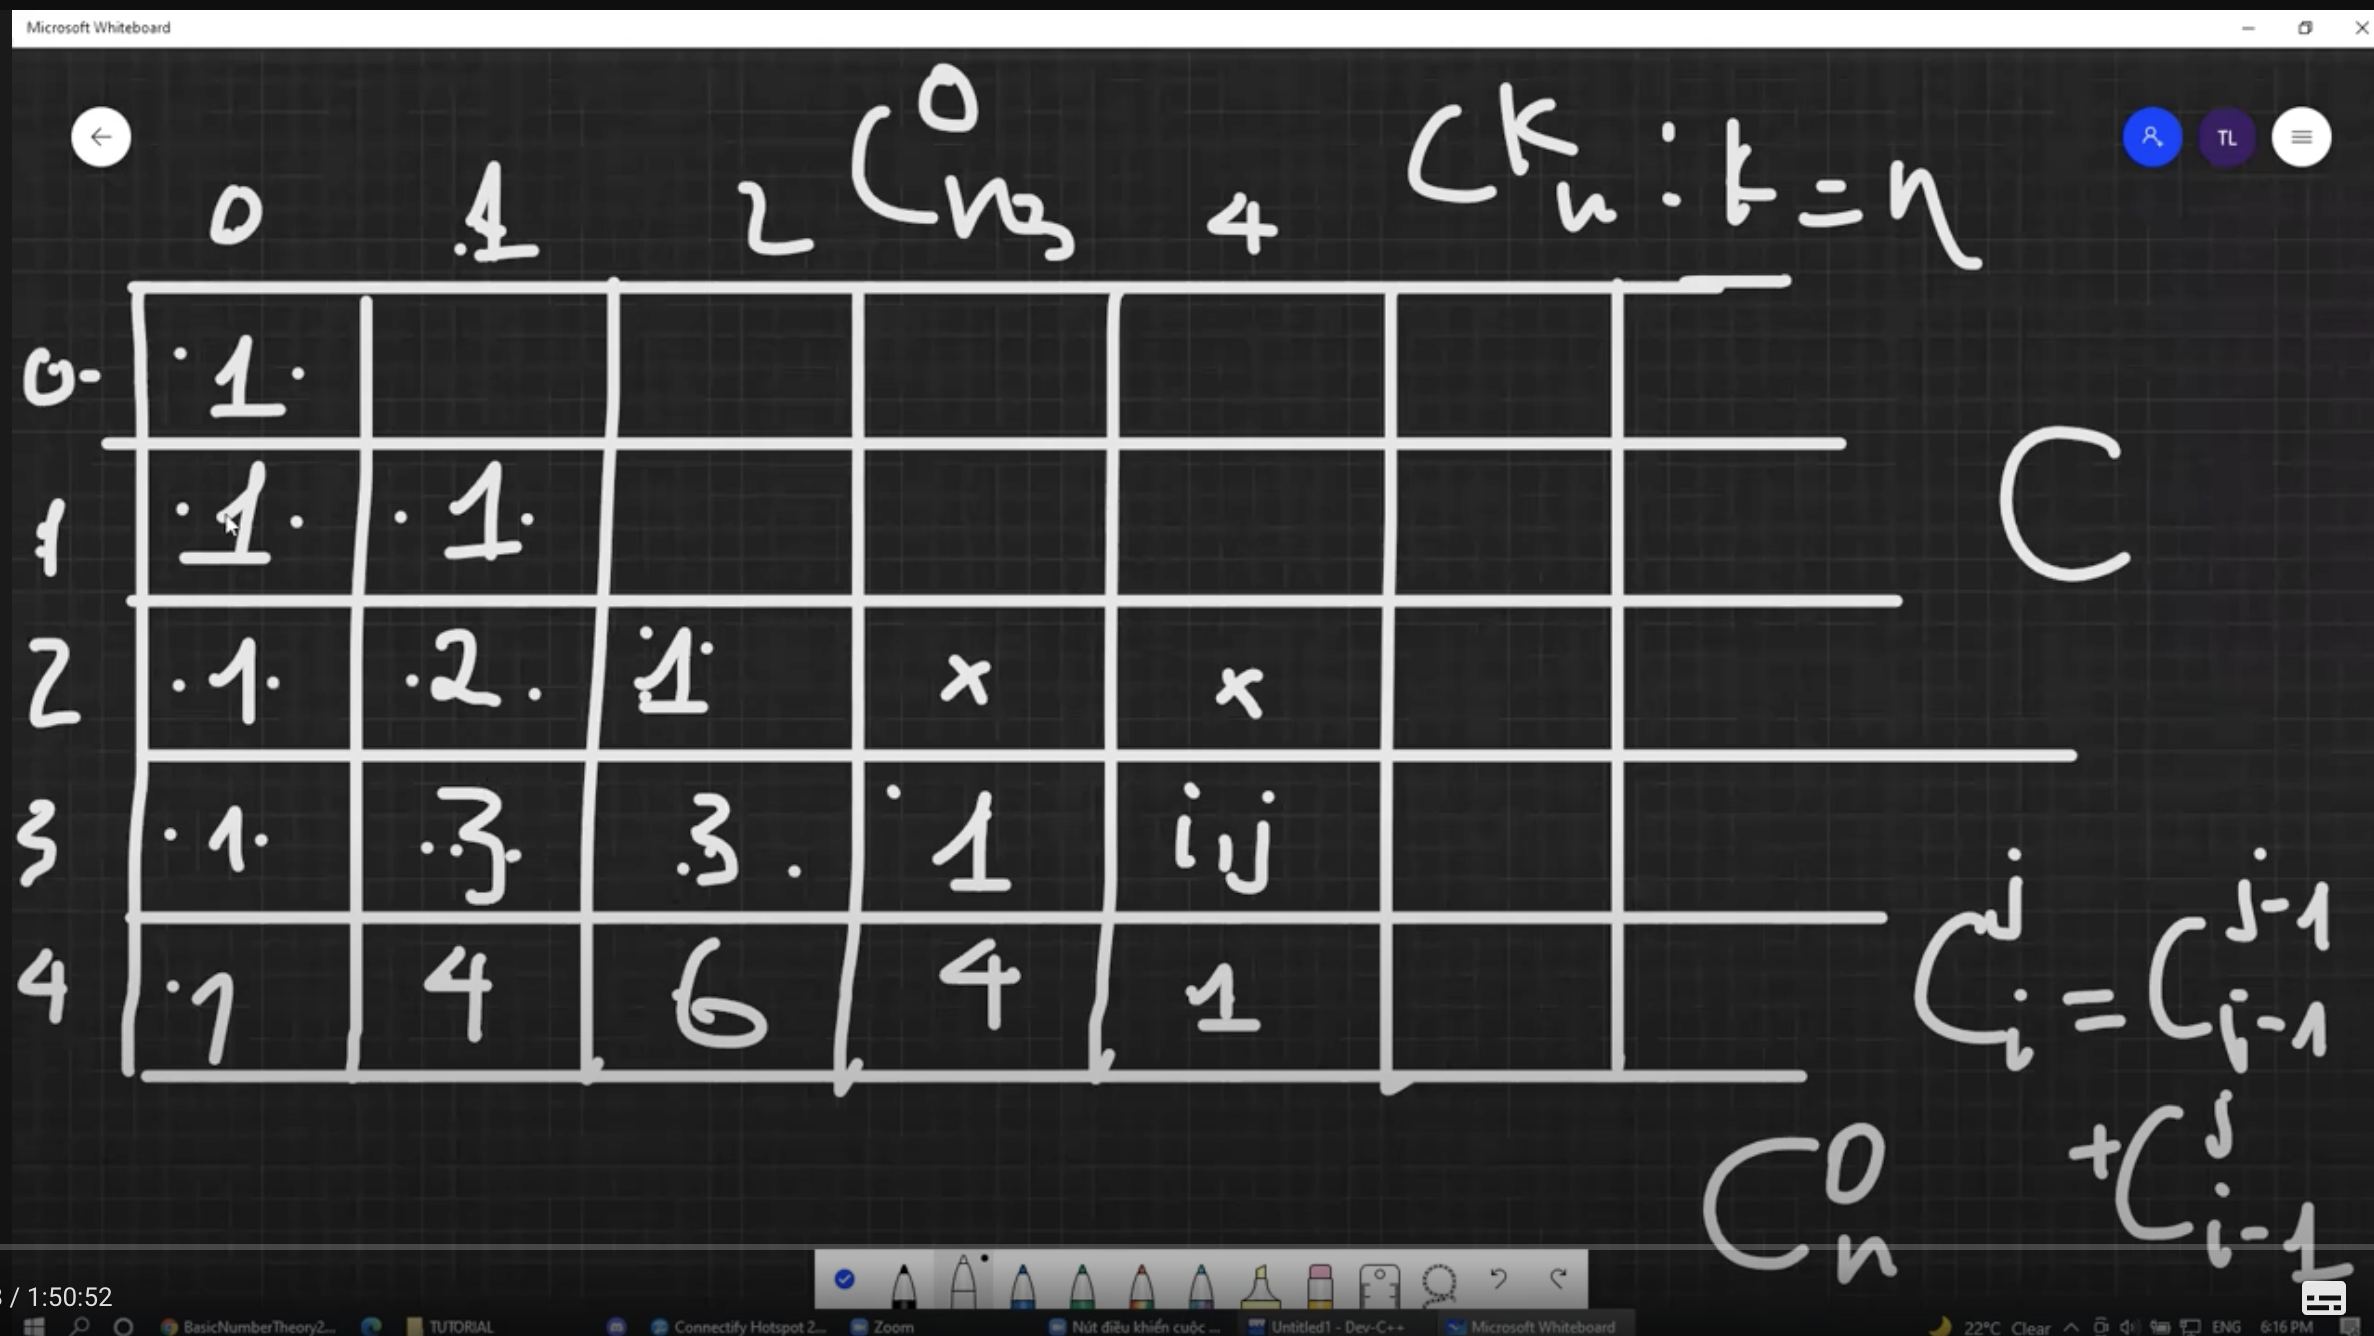 Microsoft Whiteboard
C⁰ₙ Cᵏₙ : k = n
TL
0 1 2 3 4
0- 1
1 1 1
C
2 1 2 1 x x
3 1 3 3 1 i, j
4 1 4 6 4 1
Cʲᵢ = Cʲ⁻¹ᵢ₋₁
+ Cʲᵢ₋₁
C⁰ₙ
/ 1:50:52
BasicNumberTheory2... TUTORIAL Connectify Hotspot 2... Zoom Nút điều khiển cuộc ... Untitled1 - Dev-C++ Microsoft Whiteboard 22°C Clear ENG 6:16 PM